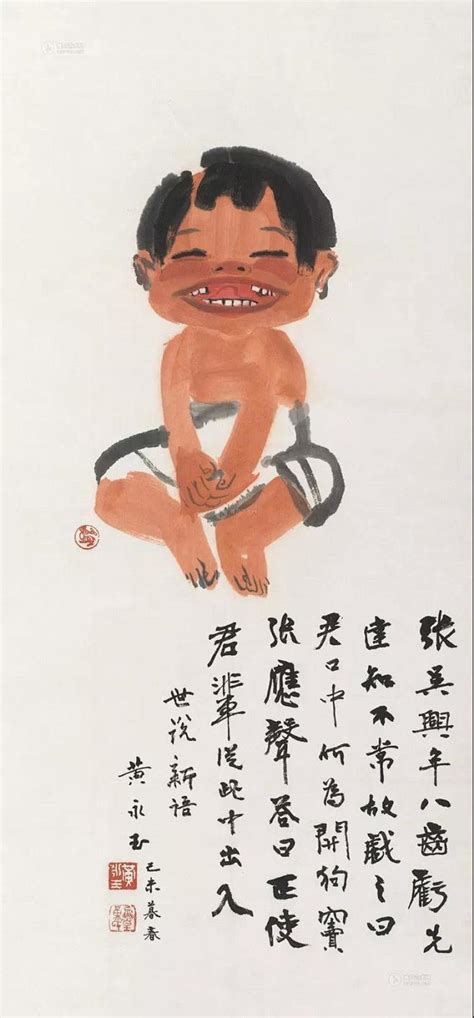 張吳興年八齒虧先
達知不常故戲之曰
君口中何為開狗竇
張應聲答曰正使
君輩從此中出入
世说新语
黄永玉
己未暮春